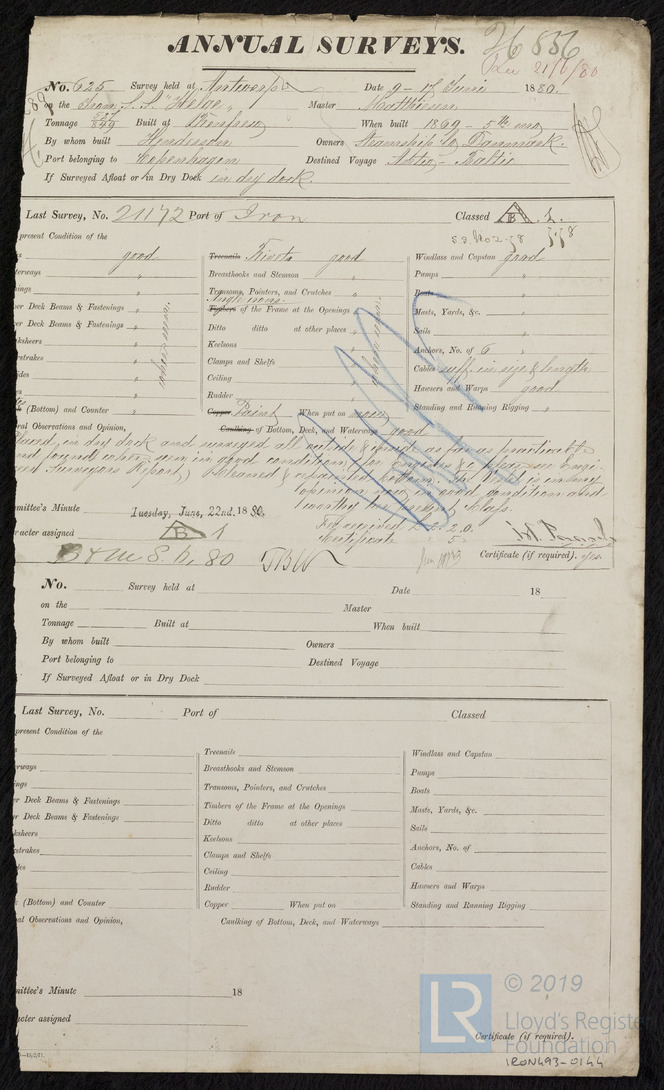 ANNUAL SURVEYS.
Rec 21/6/80
No. 625 Survey held at Antwerp Date 9-17 June 1880.
on the Iron S.S. "Helge" Master Matthiesen
Tonnage 849 Built at Renfrew When built 1869 - 5th mo
By whom built Henderson Owners Steamship Co Danmark.
Port belonging to Copenhagen Destined Voyage Baltic
If Surveyed Afloat or in Dry Dock in dry dock.
Last Survey, No. 21172 Port of Iron Classed B 1.
S.S. No 2-78
present Condition of the
good Treenails Rivets good Windlass and Capstan good
erways " Breasthooks and Stemson " Pumps "
nings " Transoms, Pointers, and Crutches " Boats "
Angle irons
er Deck Beams & Fastenings " Timbers of the Frame at the Openings Masts, Yards, &c. "
er Deck Beams & Fastenings " Ditto ditto at other places " Sails "
ksheers Keelsons Anchors, No. of 6 "
rstrakes Clamps and Shelfs Cables suff. in size & length
des Ceiling Hawsers and Warps good
Rudder Standing and Running Rigging "
(Bottom) and Counter " Copper Paint When put on now
Caulking of Bottom, Deck, and Waterways good
ral Observations and Opinion,
Placed in dry dock and surveyed all outside & inside as far as practicable
and found when seen in good condition, for engines &c please see Engi-
neer Surveyors Report, Cleaned & repainted bottom. The vessel is in my
opinion now in good condition and
worthy her present class.
mmittee's Minute Tuesday, June, 22nd. 1880.
Fee received £ 2.0.
racter assigned B 1 Certificate 5
B & M S. 6, 80 Certificate (if required). yes.
No. Survey held at Date 18
on the Master
Tonnage Built at When built
By whom built Owners
Port belonging to Destined Voyage
If Surveyed Afloat or in Dry Dock
Last Survey, No. Port of Classed
present Condition of the
Treenails Windlass and Capstan
rways Breasthooks and Stemson Pumps
ings Transoms, Pointers, and Crutches Boats
er Deck Beams & Fastenings Timbers of the Frame at the Openings Masts, Yards, &c.
er Deck Beams & Fastenings Ditto ditto at other places Sails
ksheers Keelsons Anchors, No. of
strakes Clamps and Shelfs Cables
des Ceiling Hawsers and Warps
Rudder Standing and Running Rigging
(Bottom) and Counter Copper When put on
al Observations and Opinion, Caulking of Bottom, Deck, and Waterways
mittee's Minute 18
acter assigned
Certificate (if required).
LR © 2019
Lloyd's Register
Foundation
IRON493-0144